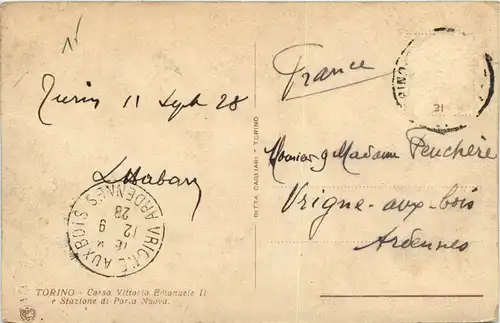 France
Turin 11 Sept 28
Monsieur & Madame Peuchère
Vrigne-aux-bois
Ardennes
VRIGNE AUX BOIS
ARDENNES
12 9
28
21
DITTA CAGLIARI - TORINO
TORINO - Corso Vittorio Emanuele II
e Stazione di Porta Nuova.